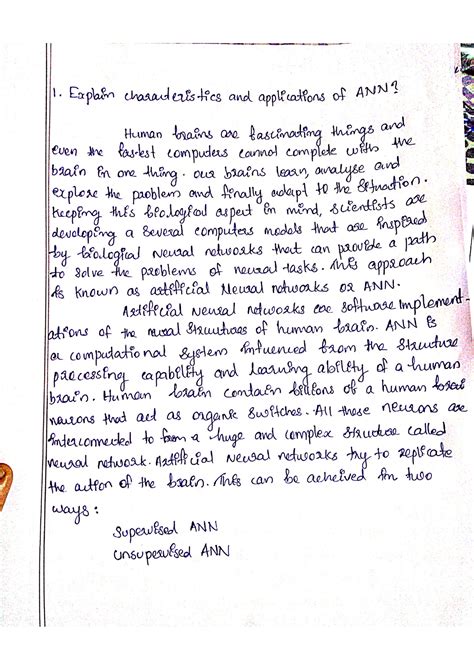 1. Explain characteristics and applications of ANN?
Human brains are fascinating things and
even the fastest computers cannot complete with the
brain in one thing. our brains learn, analyse and
explore the problem and finally adapt to the situation.
keeping this biological aspect in mind, scientists are
developing a several computers models that are inspired
by biological Neural networks that can provide a path
to solve the problems of neural tasks. This approach
is known as artificial Neural networks or ANN.
Artificial Neural networks are software implement-
ations of the neural structures of human brain. ANN is
a computational system influenced from the structure
processing capability and learning ability of a human
brain. Human brain contain billions of a human
neurons that act as organic switches. All these neurons are
interconnected to form a huge and complex structure called
neural network. Artificial Neural networks try to replicate
the action of the brain. This can be acheived in two
ways:
Supervised ANN
Unsupervised ANN